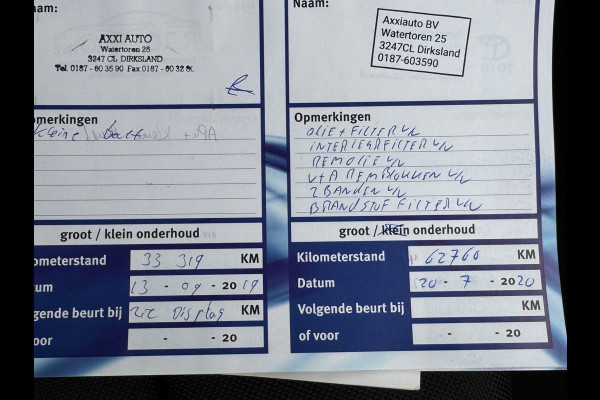 Naam:
AXXI AUTO
Watertoren 25
3247 CL DIRKSLAND
Tel. 0187 - 60 35 90 Fax 0187 - 60 32
pmerkingen
kleine
groot / klein onderhoud
ometerstand 33 319 KM
tum 13 - 09 - 2019
gende beurt bij zie Display
oor - - 20
Naam:
Axxiauto BV
Watertoren 25
3247CL Dirksland
0187-603590
Opmerkingen
OLIE + FILTER V/V
INTERIEURFILTER V/V
REMOLIE V/V
V+A REMBLOKKEN V/V
2 BANDEN V/V
BRANDSTOF FILTER V/V
groot / klein onderhoud
Kilometerstand 62760 KM
Datum 20 - 7 - 2020
Volgende beurt bij KM
of voor - - 20